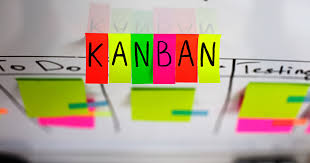 KANBAN
To Do
Testing